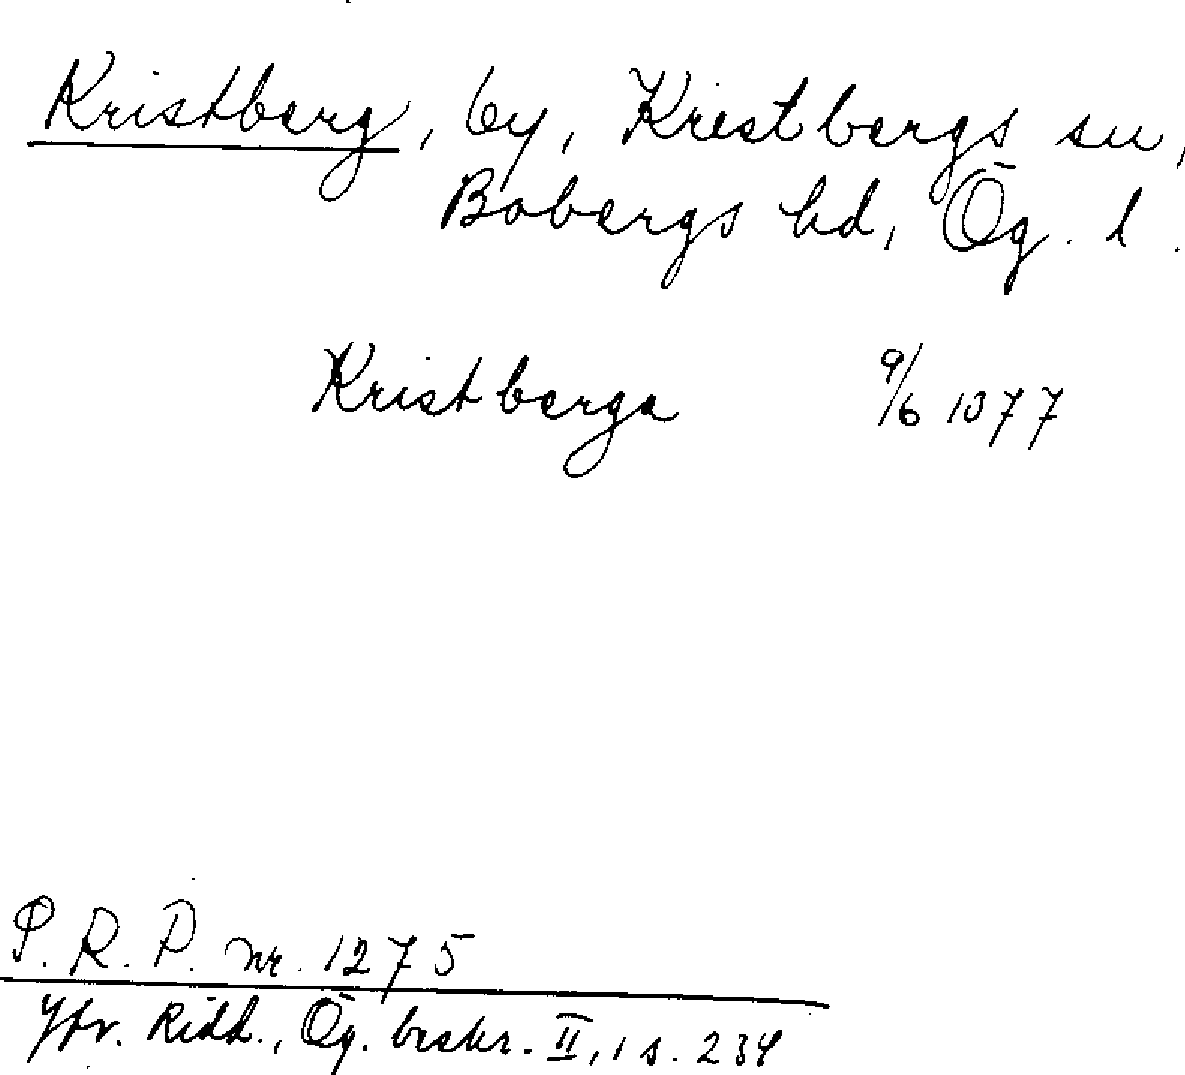 Kristberg, by, Kristbergs sn,
Bobergs hd, Ög. l.
Kristberga 9/6 1377
P. R. P. nr. 1275
Jfr. Ridd., Ög. beskr. II, 1 s. 234